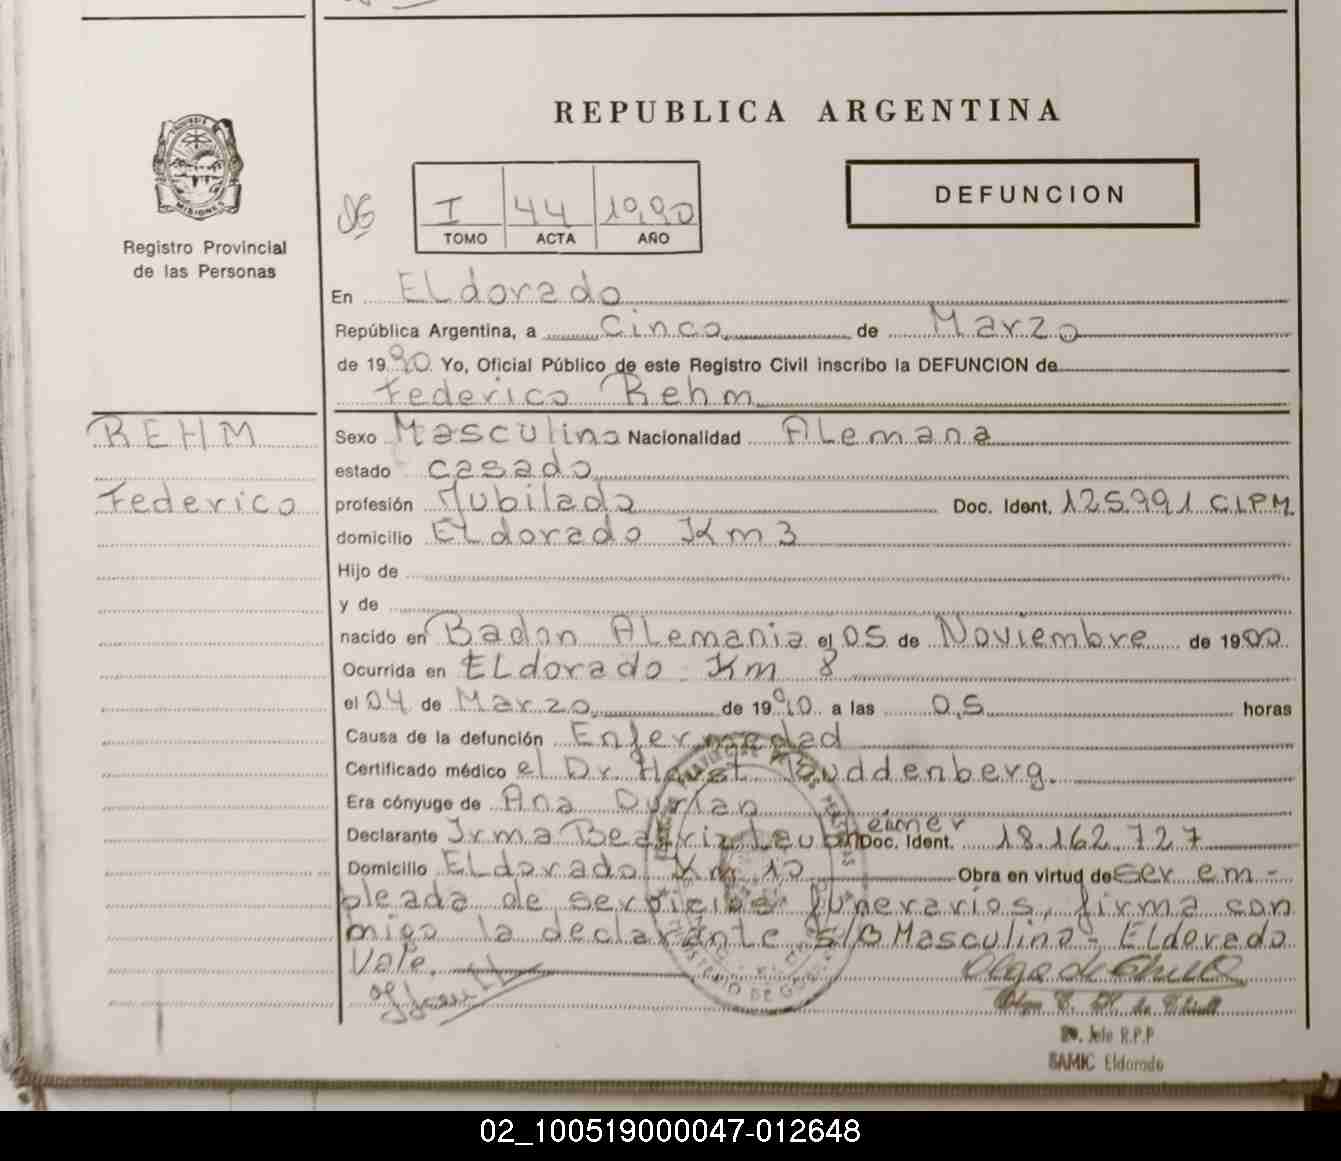 REPUBLICA ARGENTINA
DEFUNCION
I 44 1990
TOMO ACTA AÑO
MISIONES
Registro Provincial
de las Personas
En ELdorado
República Argentina, a Cinco de Marzo
de 1990. Yo, Oficial Público de este Registro Civil inscribo la DEFUNCION de
Federico Rehm
REHM
Federico
Sexo Masculino Nacionalidad ALemana
estado casado
profesión Jubilado Doc. Ident. 125.991 C.I.P.M.
domicilio ELdorado Km 3
Hijo de
y de
nacido en Badon ALemania el 05 de Noviembre de 1900
Ocurrida en ELdorado Km 8
el 04 de Marzo de 1990 a las 0,5 horas
Causa de la defunción Enfermedad
Certificado médico el Dr. Horst Buddenberg.
Era cónyuge de Ana Durian
Declarante Irma Beatriz Laubheimer Doc. Ident. 18.162.727
Domicilio ELdorado Km 10 Obra en virtud de ser em-
pleada de servicios funerarios, firma con
migo la declarante s/B Masculino - ELdorado
Vale.
Jefe R.P.P
SAMIC Eldorado
02_100519000047-012648